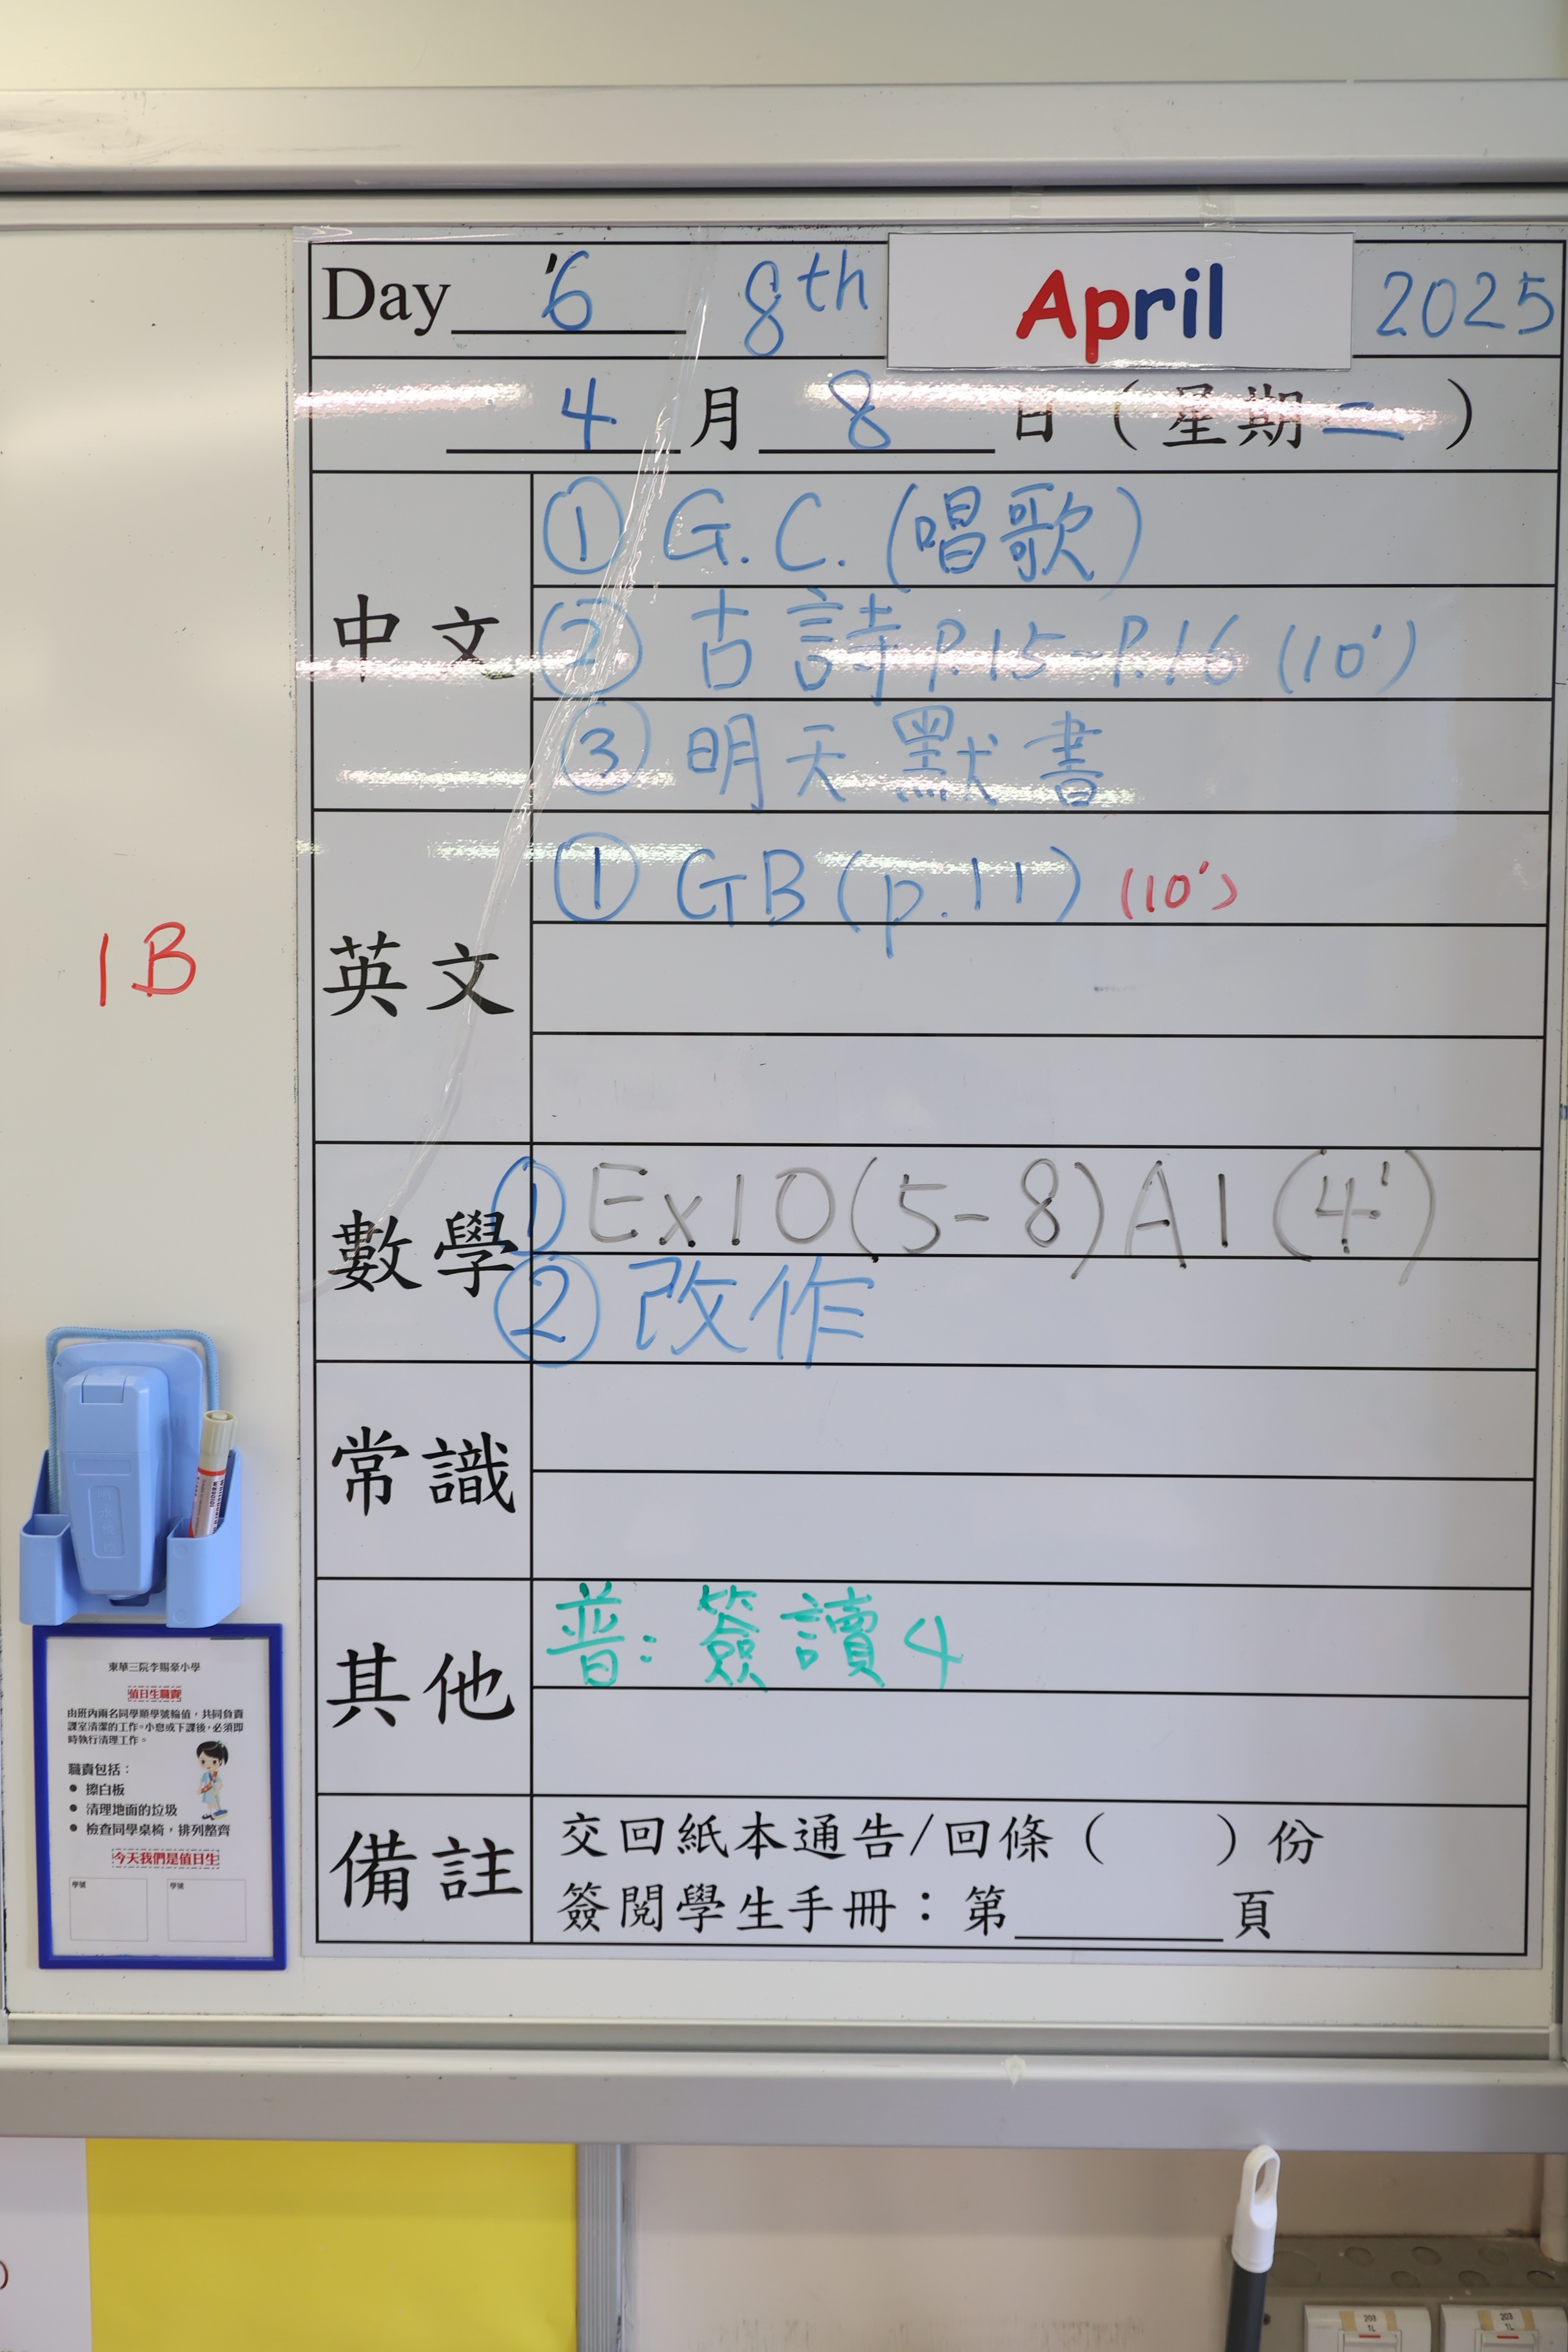 Day 6 8th April 2025
4 月 8 日 ( 星期二 )
中文
① G.C. (唱歌)
② 古詩 P.15-P.16 (10')
③ 明天默書
英文
① GB (p.11) (10')
數學
① Ex10(5-8)A1(4')
② 改作
常識
其他
普: 簽讀4
備註
交回紙本通告/回條 ( ) 份
簽閱學生手冊：第____頁
1B
東華三院李賜豪小學
值日生職責
由班內兩名同學順學號輪值，共同負責
課室清潔的工作。小息或下課後，必須即
時執行清理工作。
職責包括：
● 擦白板
● 清理地面的垃圾
● 檢查同學桌椅，排列整齊
今天我們是值日生
學號 學號
203
1L
203
1L